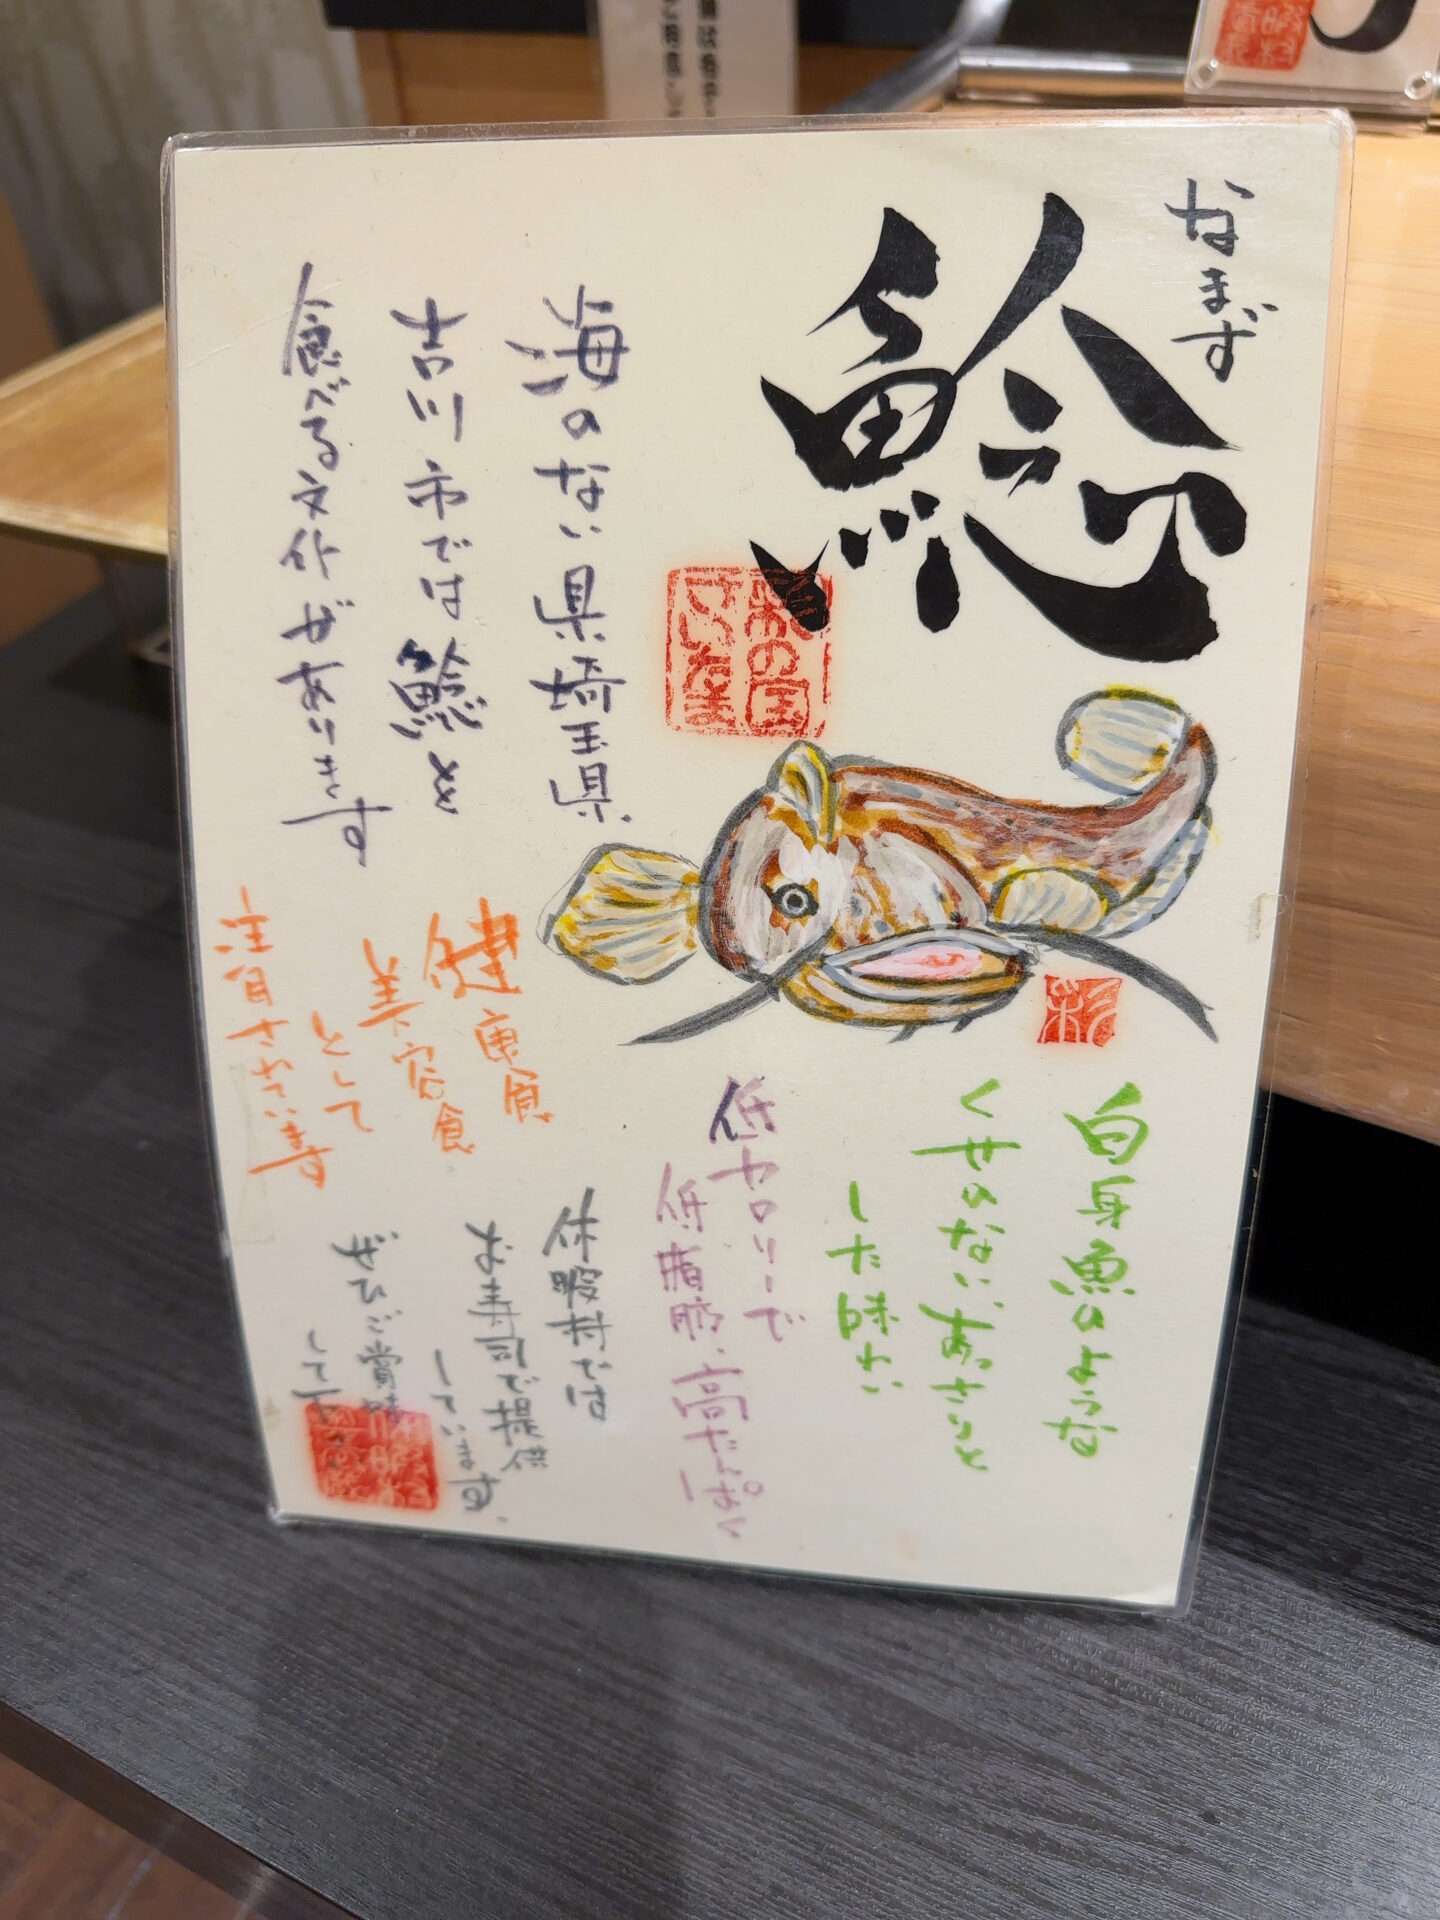 なまず
鯰
彩の国
さいたま
海のない県埼玉県
吉川市では鯰を
食べる文化がありまます
彩
白身魚のような
くせのない、あっさりと
した味わい
低カロリーで
低脂肪・高たんぱく
健康食
美容食
として
注目されています
休暇村では
お寿司で提供
しています。
ぜひご賞味
して下さい